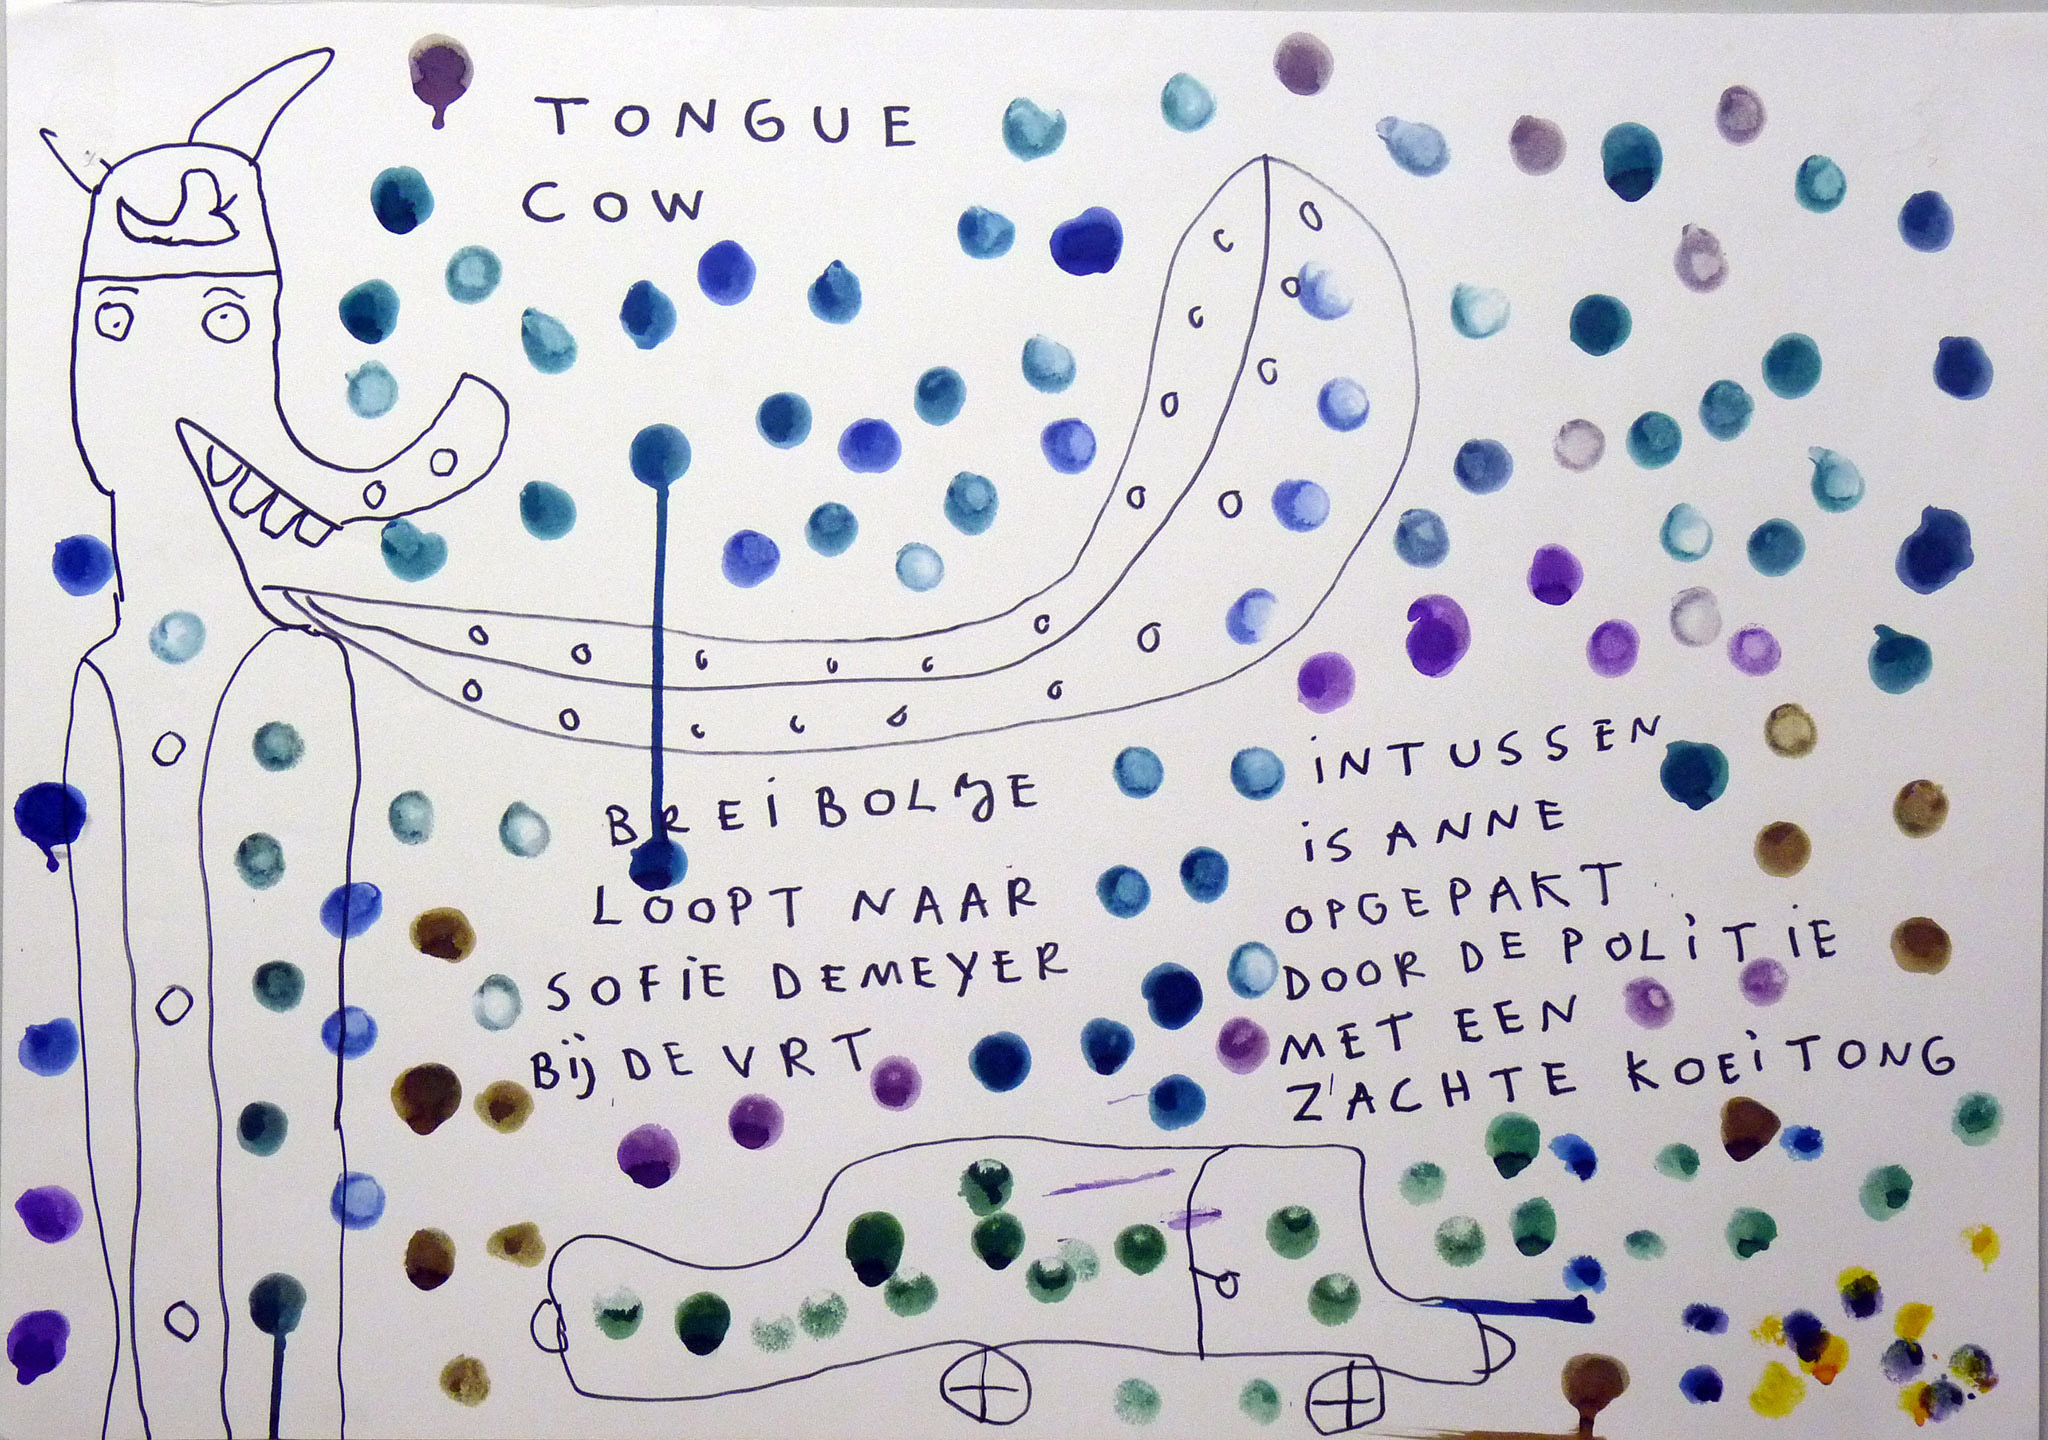 TONGUE
COW
BREiBOLYE
LOOPT NAAR
SOFiE DEMEYER
Bij DE VRT
iNTUSSEN
iS ANNE
OPGEPAKT
DOOR DE POLiTiE
MET EEN
ZACHTE KOEiTONG